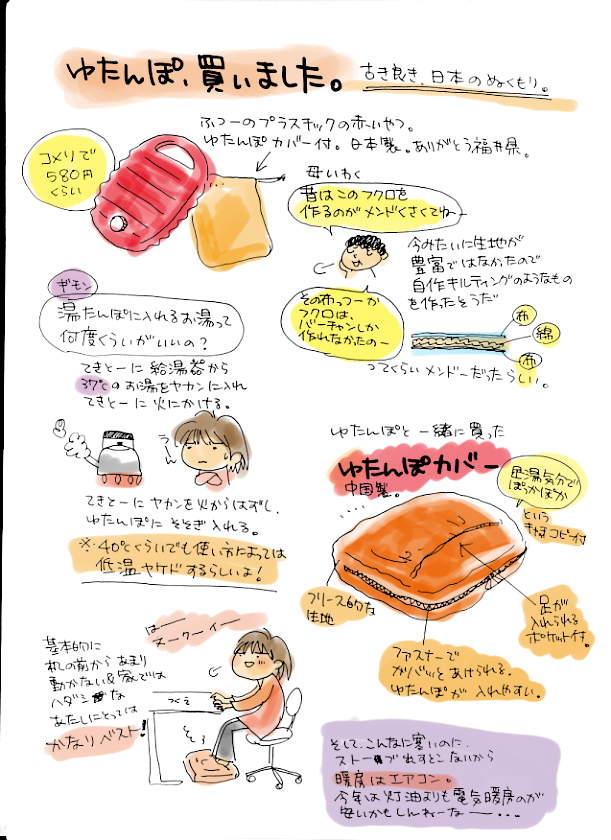 ゆたんぽ、買いました。
古き良き、日本のぬくもり。
ふつーのプラスチックの赤いやつ。
ゆたんぽカバー付。日本製。ありがとう福井県。
コメリで
580円
くらい
母いわく
昔はこのフクロを
作るのがメンドくさくてねー
今みたいに生地が
豊富ではなかったので
自作キルティングのようなもの
を作ったそうだ
その布っつーか
フクロは、
バーチャンしか
作れなかたのー
布
綿
布
ってくらいメンドーだったらしい。
ギモン
湯たんぽに入れるお湯って
何度くらいがいいの?
てきとーに給湯器から
37℃のお湯をヤカンに入れ
てきとーに火にかける。
うーん
てきとーにヤカンを火からはずし、
ゆたんぽにそそぎ入れる。
※40℃くらいでも使い方によっては
低温ヤケドするらしいよ!
ゆたんぽと一緒に買った
ゆたんぽカバー
中国製。
足湯気分で
ぽっかぽか
という
キャッチコピー付
フリース的な
生地
足が
入れられる
ポケット付。
ファスナーで
ガバッとあけられる。
ゆたんぽが入れやすい。
はー
ヌークーイー
基本的に
机の前からあまり
動かない&家では
ハダシな
あたしにとっては
かなりベスト!
つくえ
そして、こんなに寒いのに、
ストーブ出すとこないから
暖房はエアコン。
今年は灯油よりも電気暖房のが
安いかもしんねーなー・・・